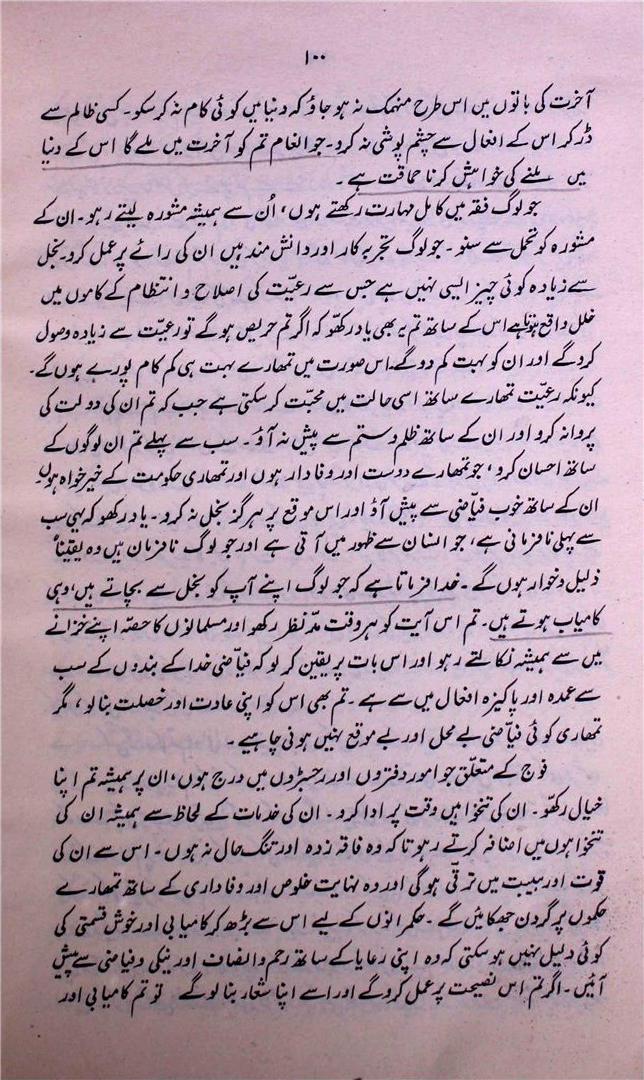 ۱۰۰
آخرت کی باتوں میں اس طرح منہمک نہ ہو جاؤ کہ دنیا میں کوئی کام نہ کر سکو۔ کسی ظالم سے
ڈر کر اس کے افعال سے چشم پوشی نہ کرو۔ جو انعام تم کو آخرت میں ملے گا اس کے دنیا
میں ملنے کی خواہش کرنا حماقت ہے۔
جو لوگ فقہ میں کامل مہارت رکھتے ہوں، اُن سے ہمیشہ مشورہ لیتے رہو۔ ان کے
مشورہ کو تحمل سے سنو۔ جو لوگ تجربہ کار اور دانش مند ہیں ان کی رائے پر عمل کرو۔ بخل
سے زیادہ کوئی چیز ایسی نہیں ہے جس سے رعیّت کی اصلاح و انتظام کے کاموں میں
خلل واقع ہوتا ہے اس کے ساتھ تم یہ بھی یاد رکھو کہ اگر تم حریص ہوگے تو رعیّت سے زیادہ وصول
کروگے اور ان کو بہت کم دوگے۔ اس صورت میں تمھارے بہت ہی کم کام پورے ہوں گے۔
کیونکہ رعیّت تمھارے ساتھ اسی حالت میں محبّت کر سکتی ہے جب کہ تم ان کی دولت کی
پروا نہ کرو اور ان کے ساتھ ظلم و ستم سے پیش نہ آؤ۔ سب سے پہلے تم ان لوگوں کے
ساتھ احسان کرو، جو تمھارے دوست اور وفادار ہوں اور تمھاری حکومت کے خیر خواہ ہوں۔
ان کے ساتھ خوب فیّاضی سے پیش آؤ اور اس موقع پر ہرگز بخل نہ کرو۔ یاد رکھو کہ یہی سب
سے پہلی نافرمانی ہے، جو انسان سے ظہور میں آتی ہے اور جو لوگ نافرمان ہیں وہ یقیناً
ذلیل و خوار ہوں گے۔ خدا فرماتا ہے کہ جو لوگ اپنے آپ کو بخل سے بچاتے ہیں، وہی
کامیاب ہوتے ہیں۔ تم اس آیت کو ہر وقت مدّ نظر رکھو اور مسلمانوں کا حصّہ اپنے خزانے
میں سے ہمیشہ نکالتے رہو اور اس بات پر یقین کر لو کہ فیاضی خدا کے بندوں کے سب
سے عمدہ اور پاکیزہ افعال میں سے ہے۔ تم بھی اس کو اپنی عادت اور خصلت بنا لو، مگر
تمھاری کوئی فیاضی بے محل اور بے موقع نہیں ہونی چاہیے۔
فوج کے متعلّق جو امور دفتروں اور رجسٹروں میں درج ہوں، ان پر ہمیشہ تم اپنا
خیال رکھو۔ ان کی تنخواہیں وقت پر ادا کرو۔ ان کی خدمات کے لحاظ سے ہمیشہ ان کی
تنخواہوں میں اضافہ کرتے رہو تاکہ وہ فاقہ زدہ اور تنگ حال نہ ہوں۔ اس سے ان کی
قوت اور ہیبت میں ترقّی ہوگی اور وہ نہایت خلوص اور وفاداری کے ساتھ تمھارے
حکموں پر گردن جھکائیں گے۔ حکمرانوں کے لیے اس سے بڑھ کر کامیابی اور خوش قسمتی کی
کوئی دلیل نہیں ہو سکتی کہ وہ اپنی رعایا کے ساتھ رحم و انصاف اور نیکی و فیاضی سے پیش
آئیں۔ اگر تم اس نصیحت پر عمل کروگے اور اسے اپنا شعار بنا لوگے تو تم کامیابی اور